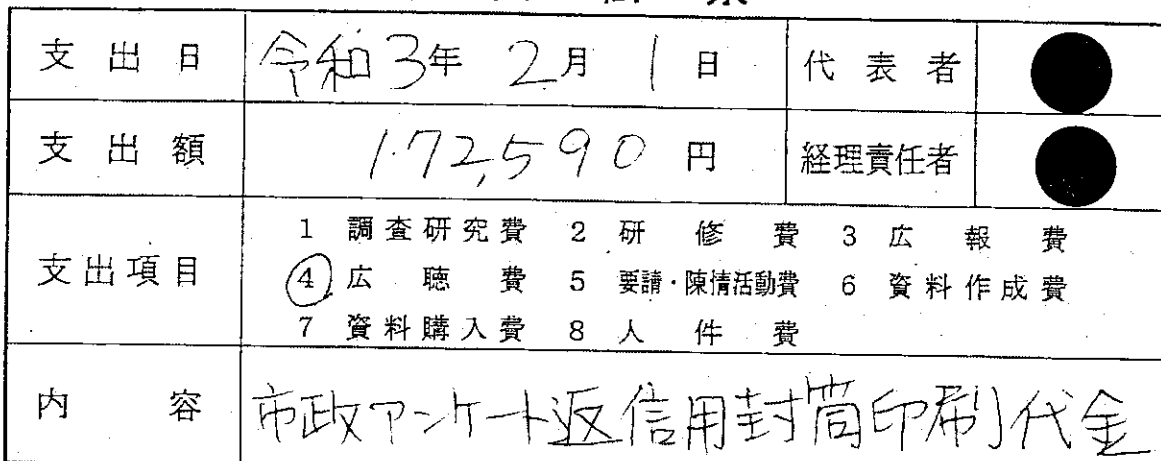 支出日 令和3年 2月 1日 代表者
支出額 172,590円 経理責任者
支出項目 1 調査研究費 2 研修費 3 広報費
④ 広聴費 5 要請・陳情活動費 6 資料作成費
7 資料購入費 8 人件費
内容 市政アンケート返信用封筒印刷代金